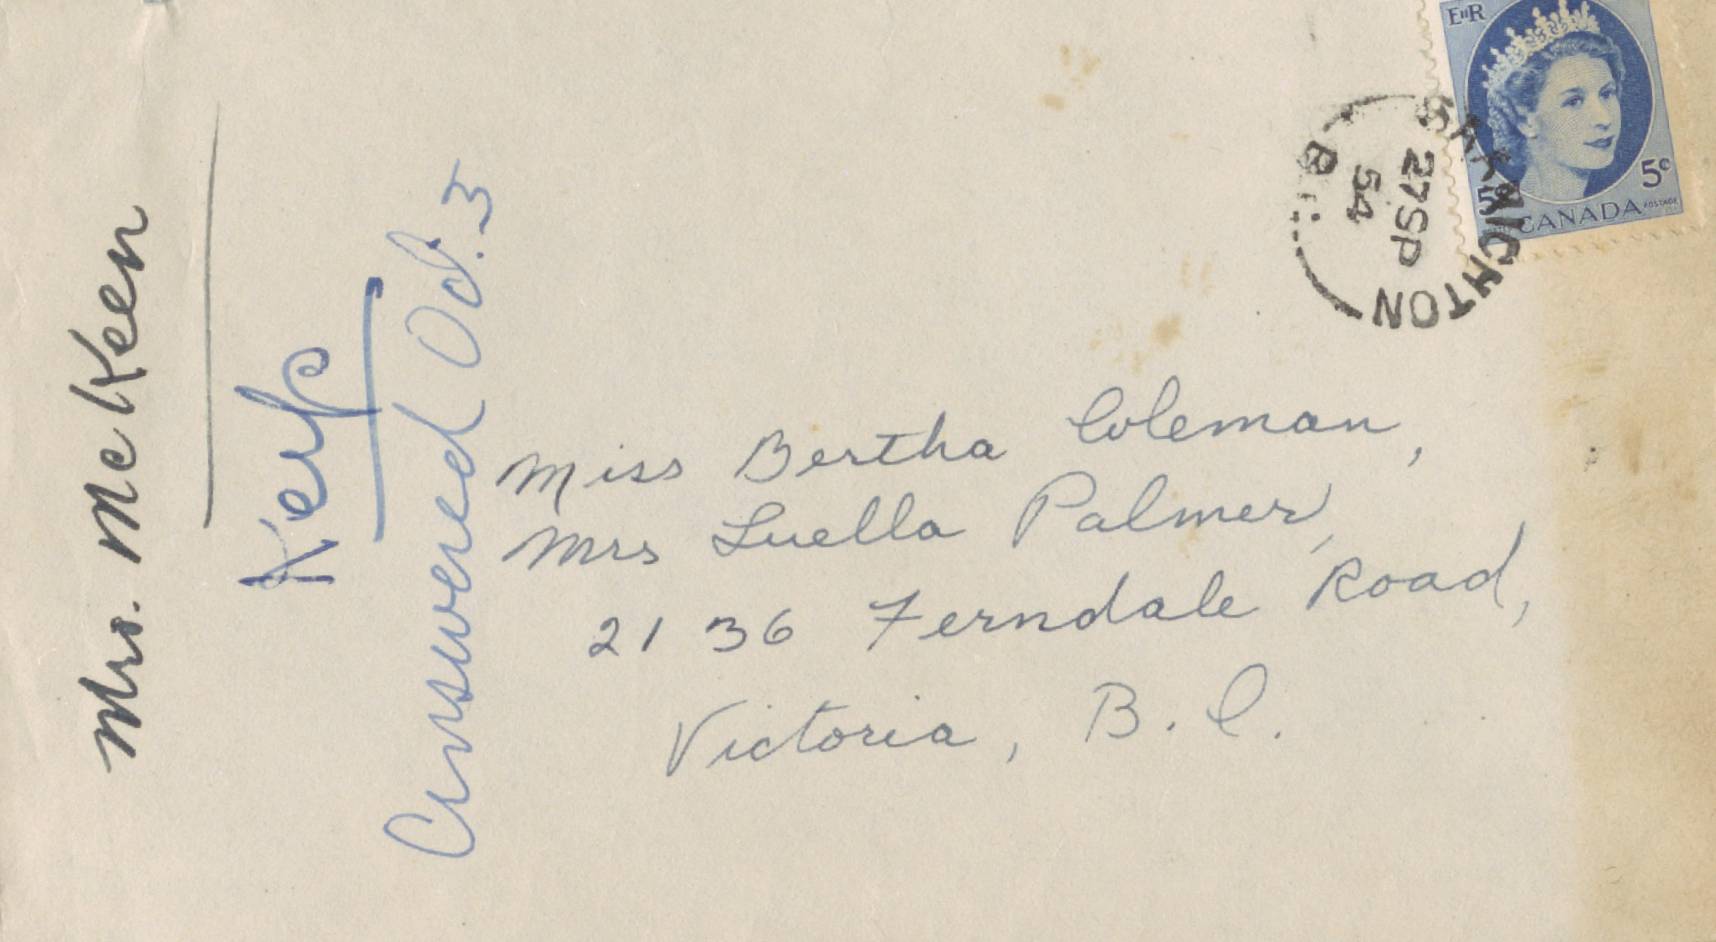 Mrs. McKeen
Keep
Answered Oct. 3
EIIR
5c
5
CANADA
POSTAGE
SAANICHTON
27 SP
54
B.C.
Miss Bertha Coleman,
Mrs Luella Palmer,
2136 Ferndale Road,
Victoria, B.C.